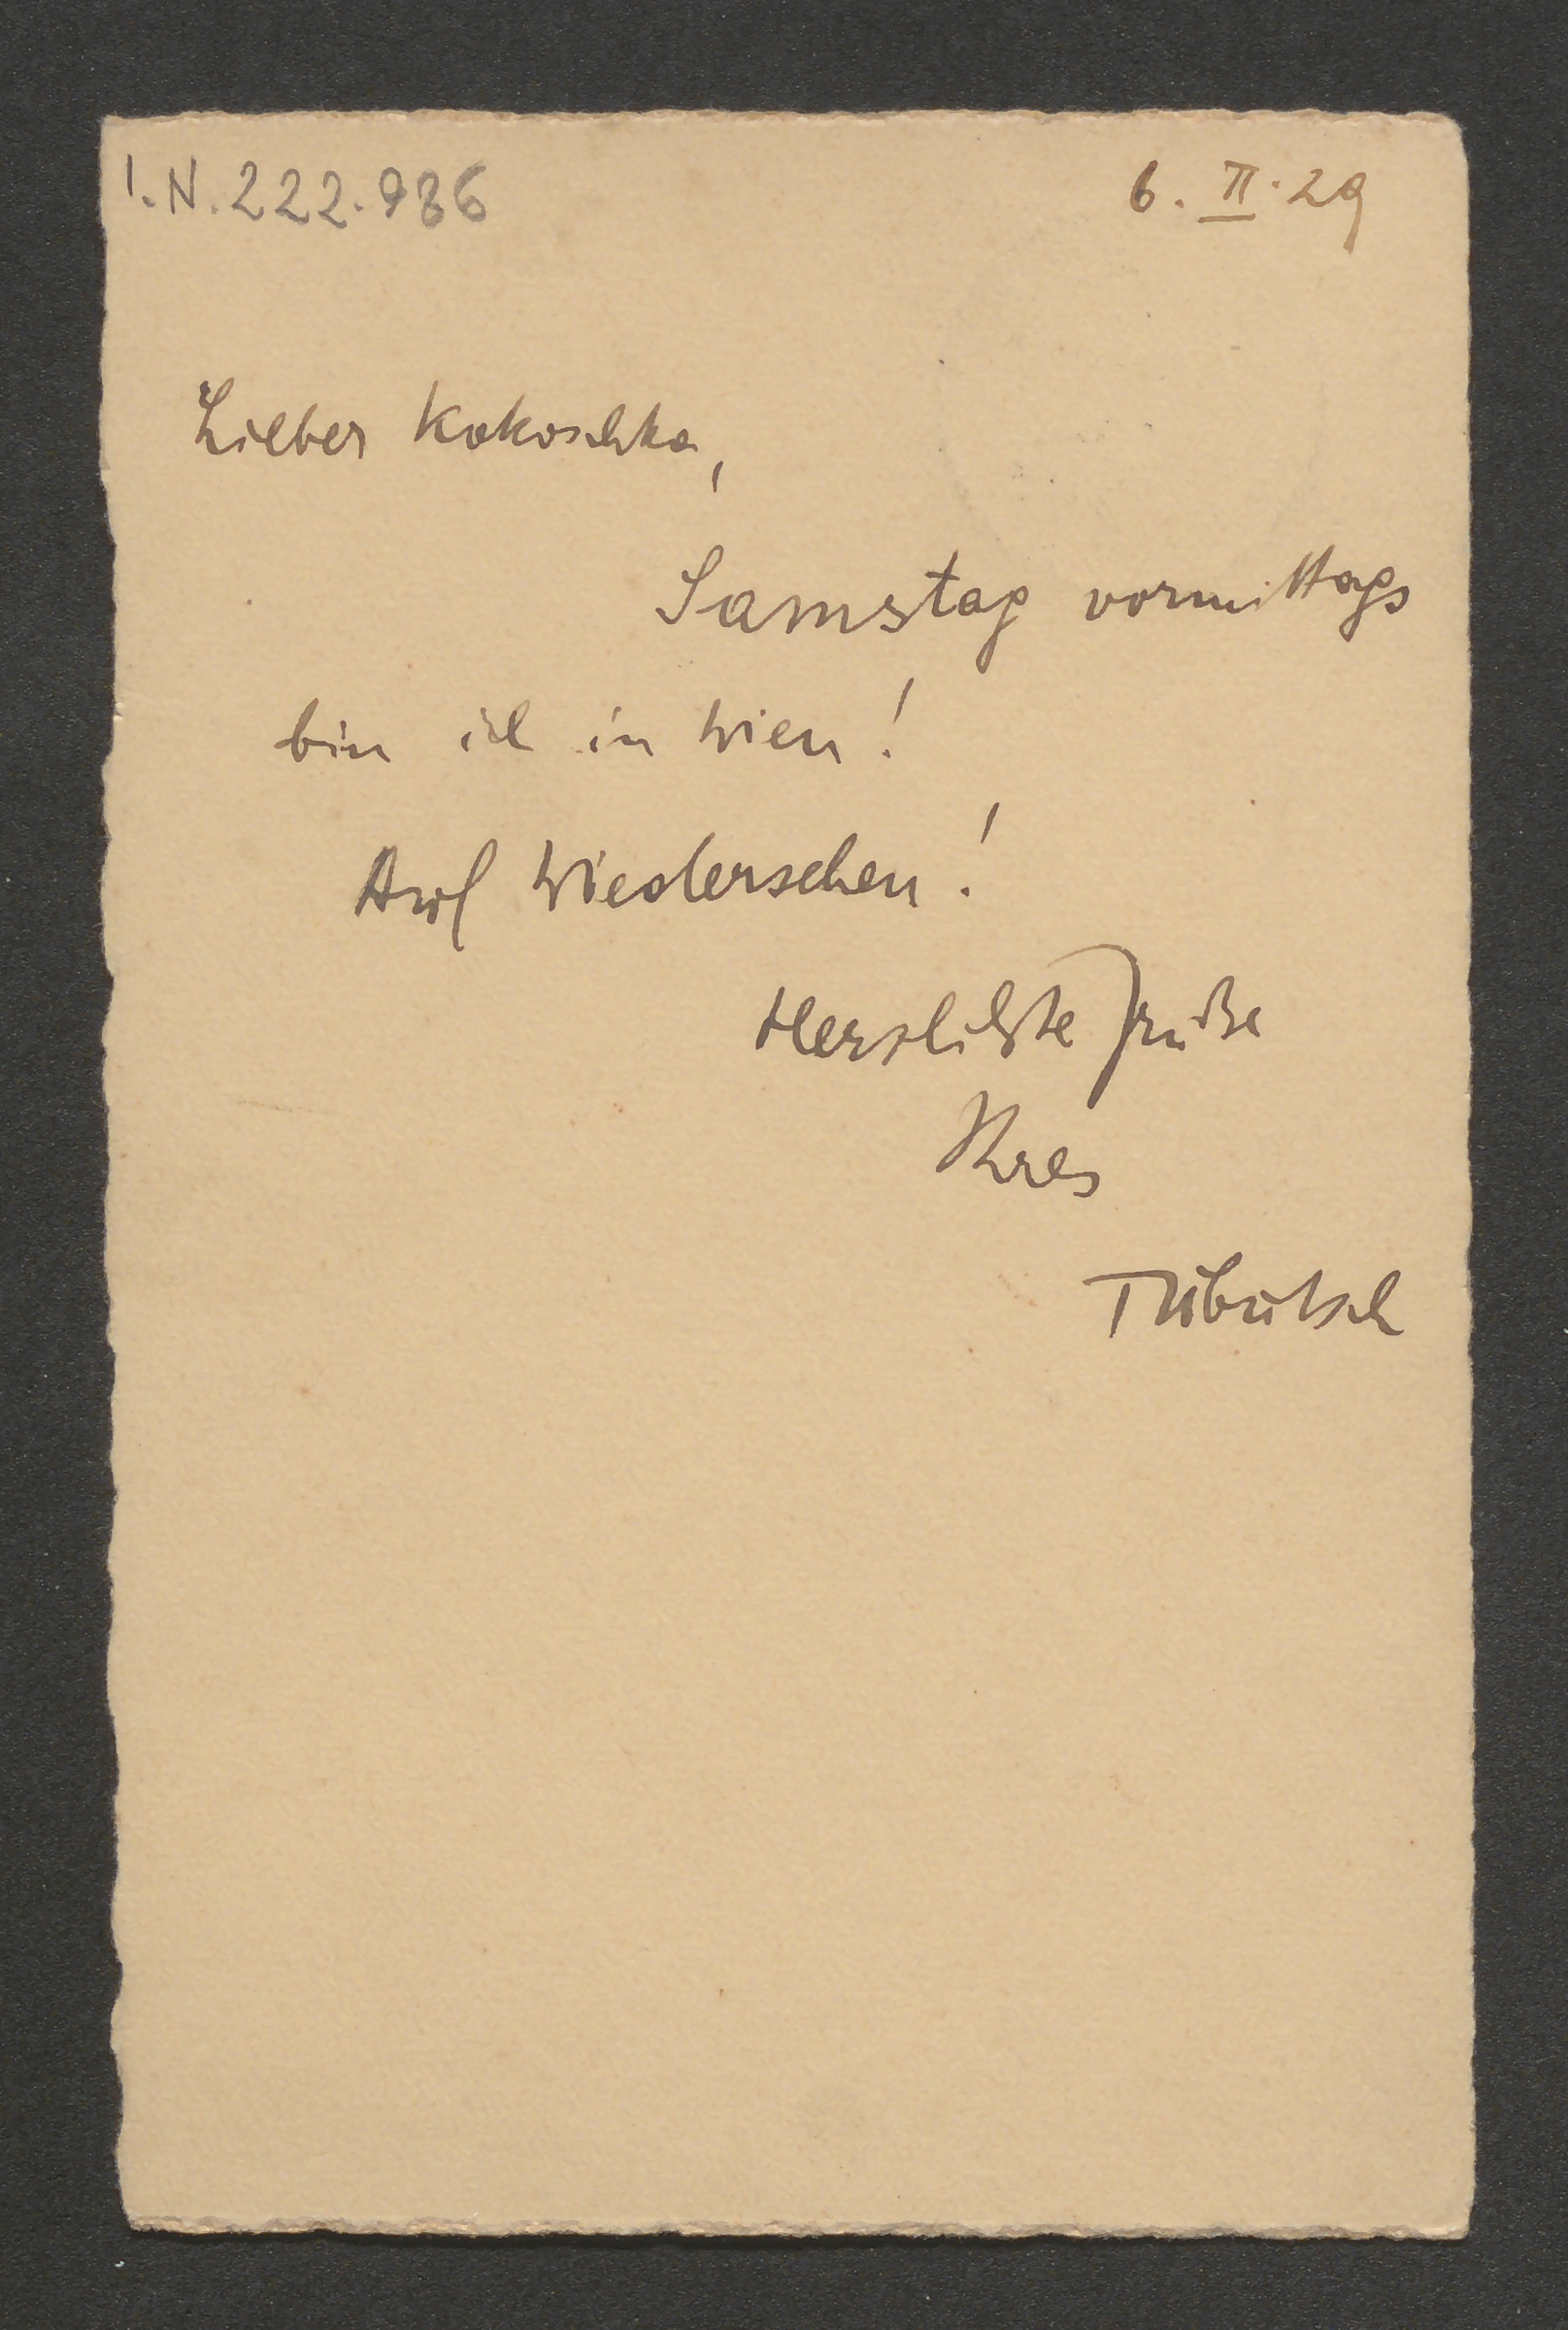 I.N. 222.986
6. II. 29
Lieber Kokoschka,
Samstag vormittags
bin ich in Wien!
Auf Wiedersehen!
Herzlichste Grüße
Ihres
Tubutsch